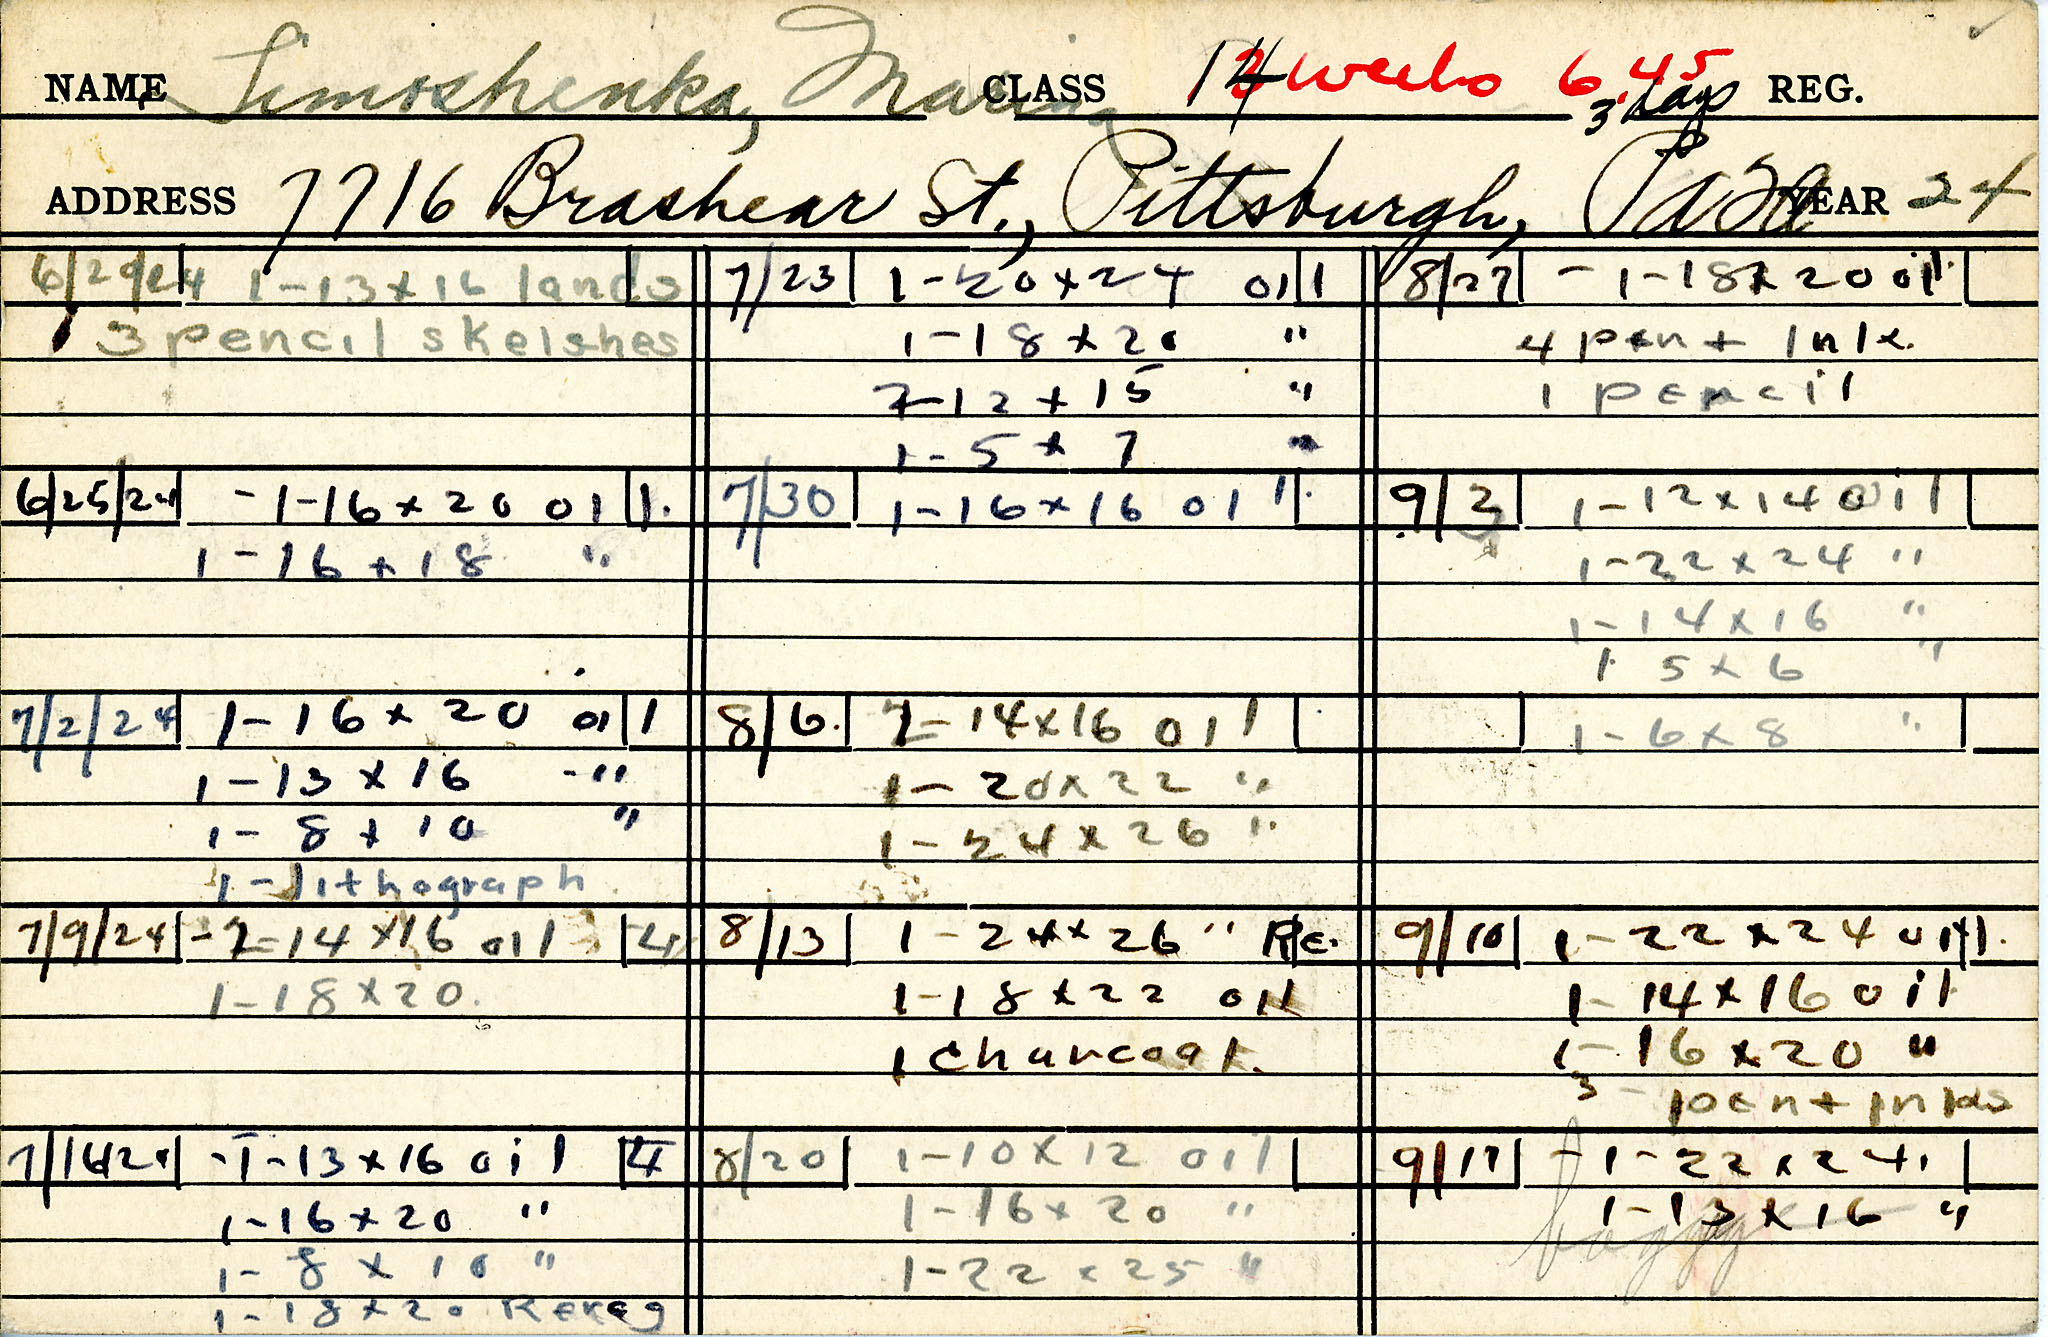 NAME Timoshenka, Marina CLASS 14 weeks 6.45 3 days REG.
ADDRESS 7716 Brashear St., Pittsburgh, Pa YEAR 24
6/29/24 1-13x16 lands
3 pencil skelshes
6/25/24 -1-16x20 oil.
1-16x18 "
7/2/24 1-16x20 oil
1-13x16 -"
1-8x10 "
1-lithograph
7/9/24 -2-14x16 oil 4
1-18x20.
7/16/24 -1-13x16 oil 4
1-16x20 "
1-8x10 "
1-18x20 Rereg
7/23 1-20x24 oil
1-18x20 "
2-12x15 "
1-5x7 "
7/30 1-16x16 oil.
8/6. 2-14x16 oil
1-20x22 "
1-24x26 "
8/13 1-24x26 " Re.
1-18x22 oil
1 Charcoal.
8/20 1-10x12 oil
1-16x20 "
1-22x25 "
8/27 -1-18x20 oil.
4 pen + Ink.
1 pencil
9/3 1-12x14 oil
1-22x24 "
1-14x16 "
1 5x6 "
1-6x8 "
9/10 1-22x24 oil.
1-14x16 oil
1-16x20 "
3 - pen + Inks
9/17 -1-22x24.
1-13x16 "